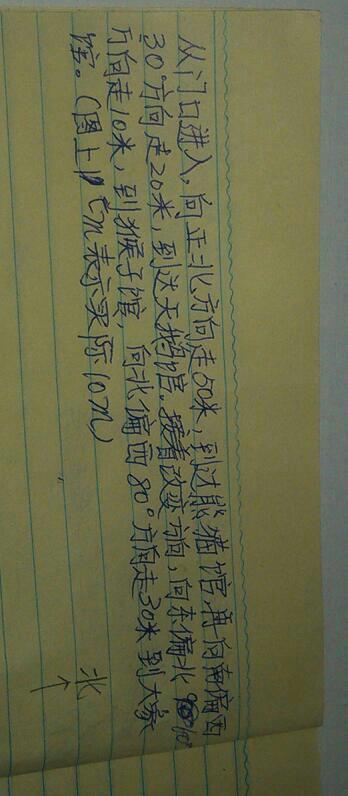 从门口进入,向正北方向走50米,到达熊猫馆,再向南偏西
30°方向走20米,到达天鹅馆。接着改变方向,向东偏北
方向走10米,到猴子馆,向北偏西80°方向走30米到大象
馆。(图上1cm表示实际10m)
北